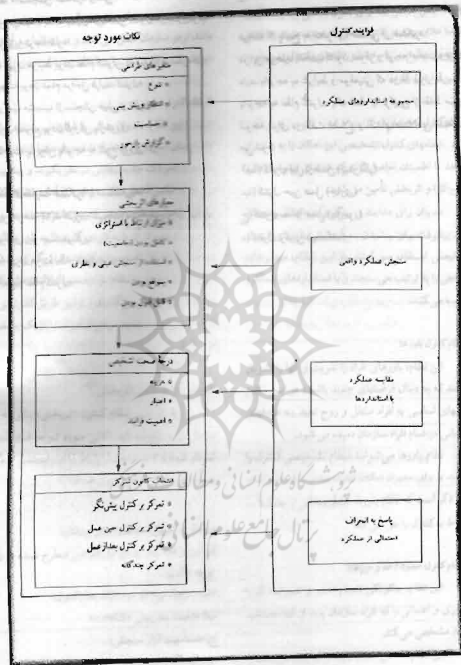 فرایند کنترل
مجموعه استانداردهای عملکرد
سنجش عملکرد واقعی
مقایسه عملکرد
با استانداردها
پاسخ به انحراف
احتمالی از عملکرد
نکات مورد توجه
متغیرهای طراحی
* تنوع
* انتظار و پیش بینی
* حساسیت
* گزارش بازخور
معیارهای اثربخشی
* میزان ارتباط با استراتژی
* کامل بودن (جامعیت)
* استفاده از سنجش عینی و نظری
* بموقع بودن
* قابل قبول بودن
درجه صحت تشخیص
* هزینه
* اعتبار
* اهمیت فرایند
انتخاب کانون تمرکز
* تمرکز بر کنترل پیش‌نگر
* تمرکز بر کنترل حین عمل
* تمرکز بر کنترل بعد از عمل
* تمرکز چندگانه
پژوهشگاه علوم انسانی و مطالعات فرهنگی
پرتال جامع علوم انسانی